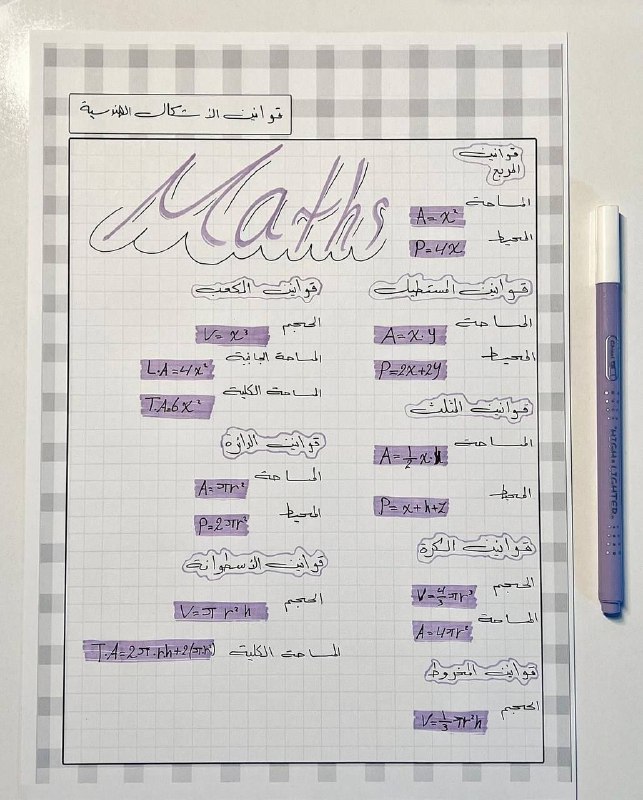 قوانين الأشكال الهندسية
Maths
قوانين
المربع
المساحة
A = x²
المحيط
P = 4x
قوانين المستطيل
المساحة
A = x.y
المحيط
P = 2x + 2y
قوانين المثلث
المساحة
A = 1/2 x.h
المحيط
P = x + h + z
قوانين الكرة
الحجم
V = 4/3 πr³
المساحة
A = 4πr²
قوانين المخروط
الحجم
V = 1/3 πr²h
قوانين المكعب
الحجم
V = x³
المساحة الجانبية
L.A = 4x²
المساحة الكلية
T.A = 6x²
قوانين الدائرة
المساحة
A = πr²
المحيط
P = 2πr
قوانين الأسطوانة
الحجم
V = π r² h
المساحة الكلية
T.A = 2π.rh + 2(πr²)
HIGHLIGHTER